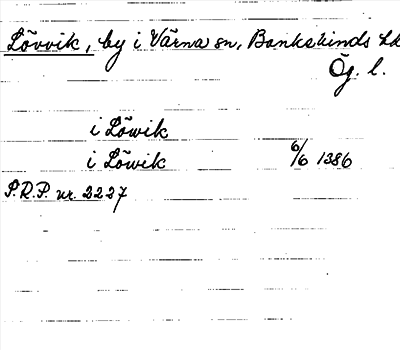 Lövvik, by i Värna sn, Bankekinds hd
Ög. l.
i Löwik
i Löwik 6/6 1386
S.R.P. nr. 2227